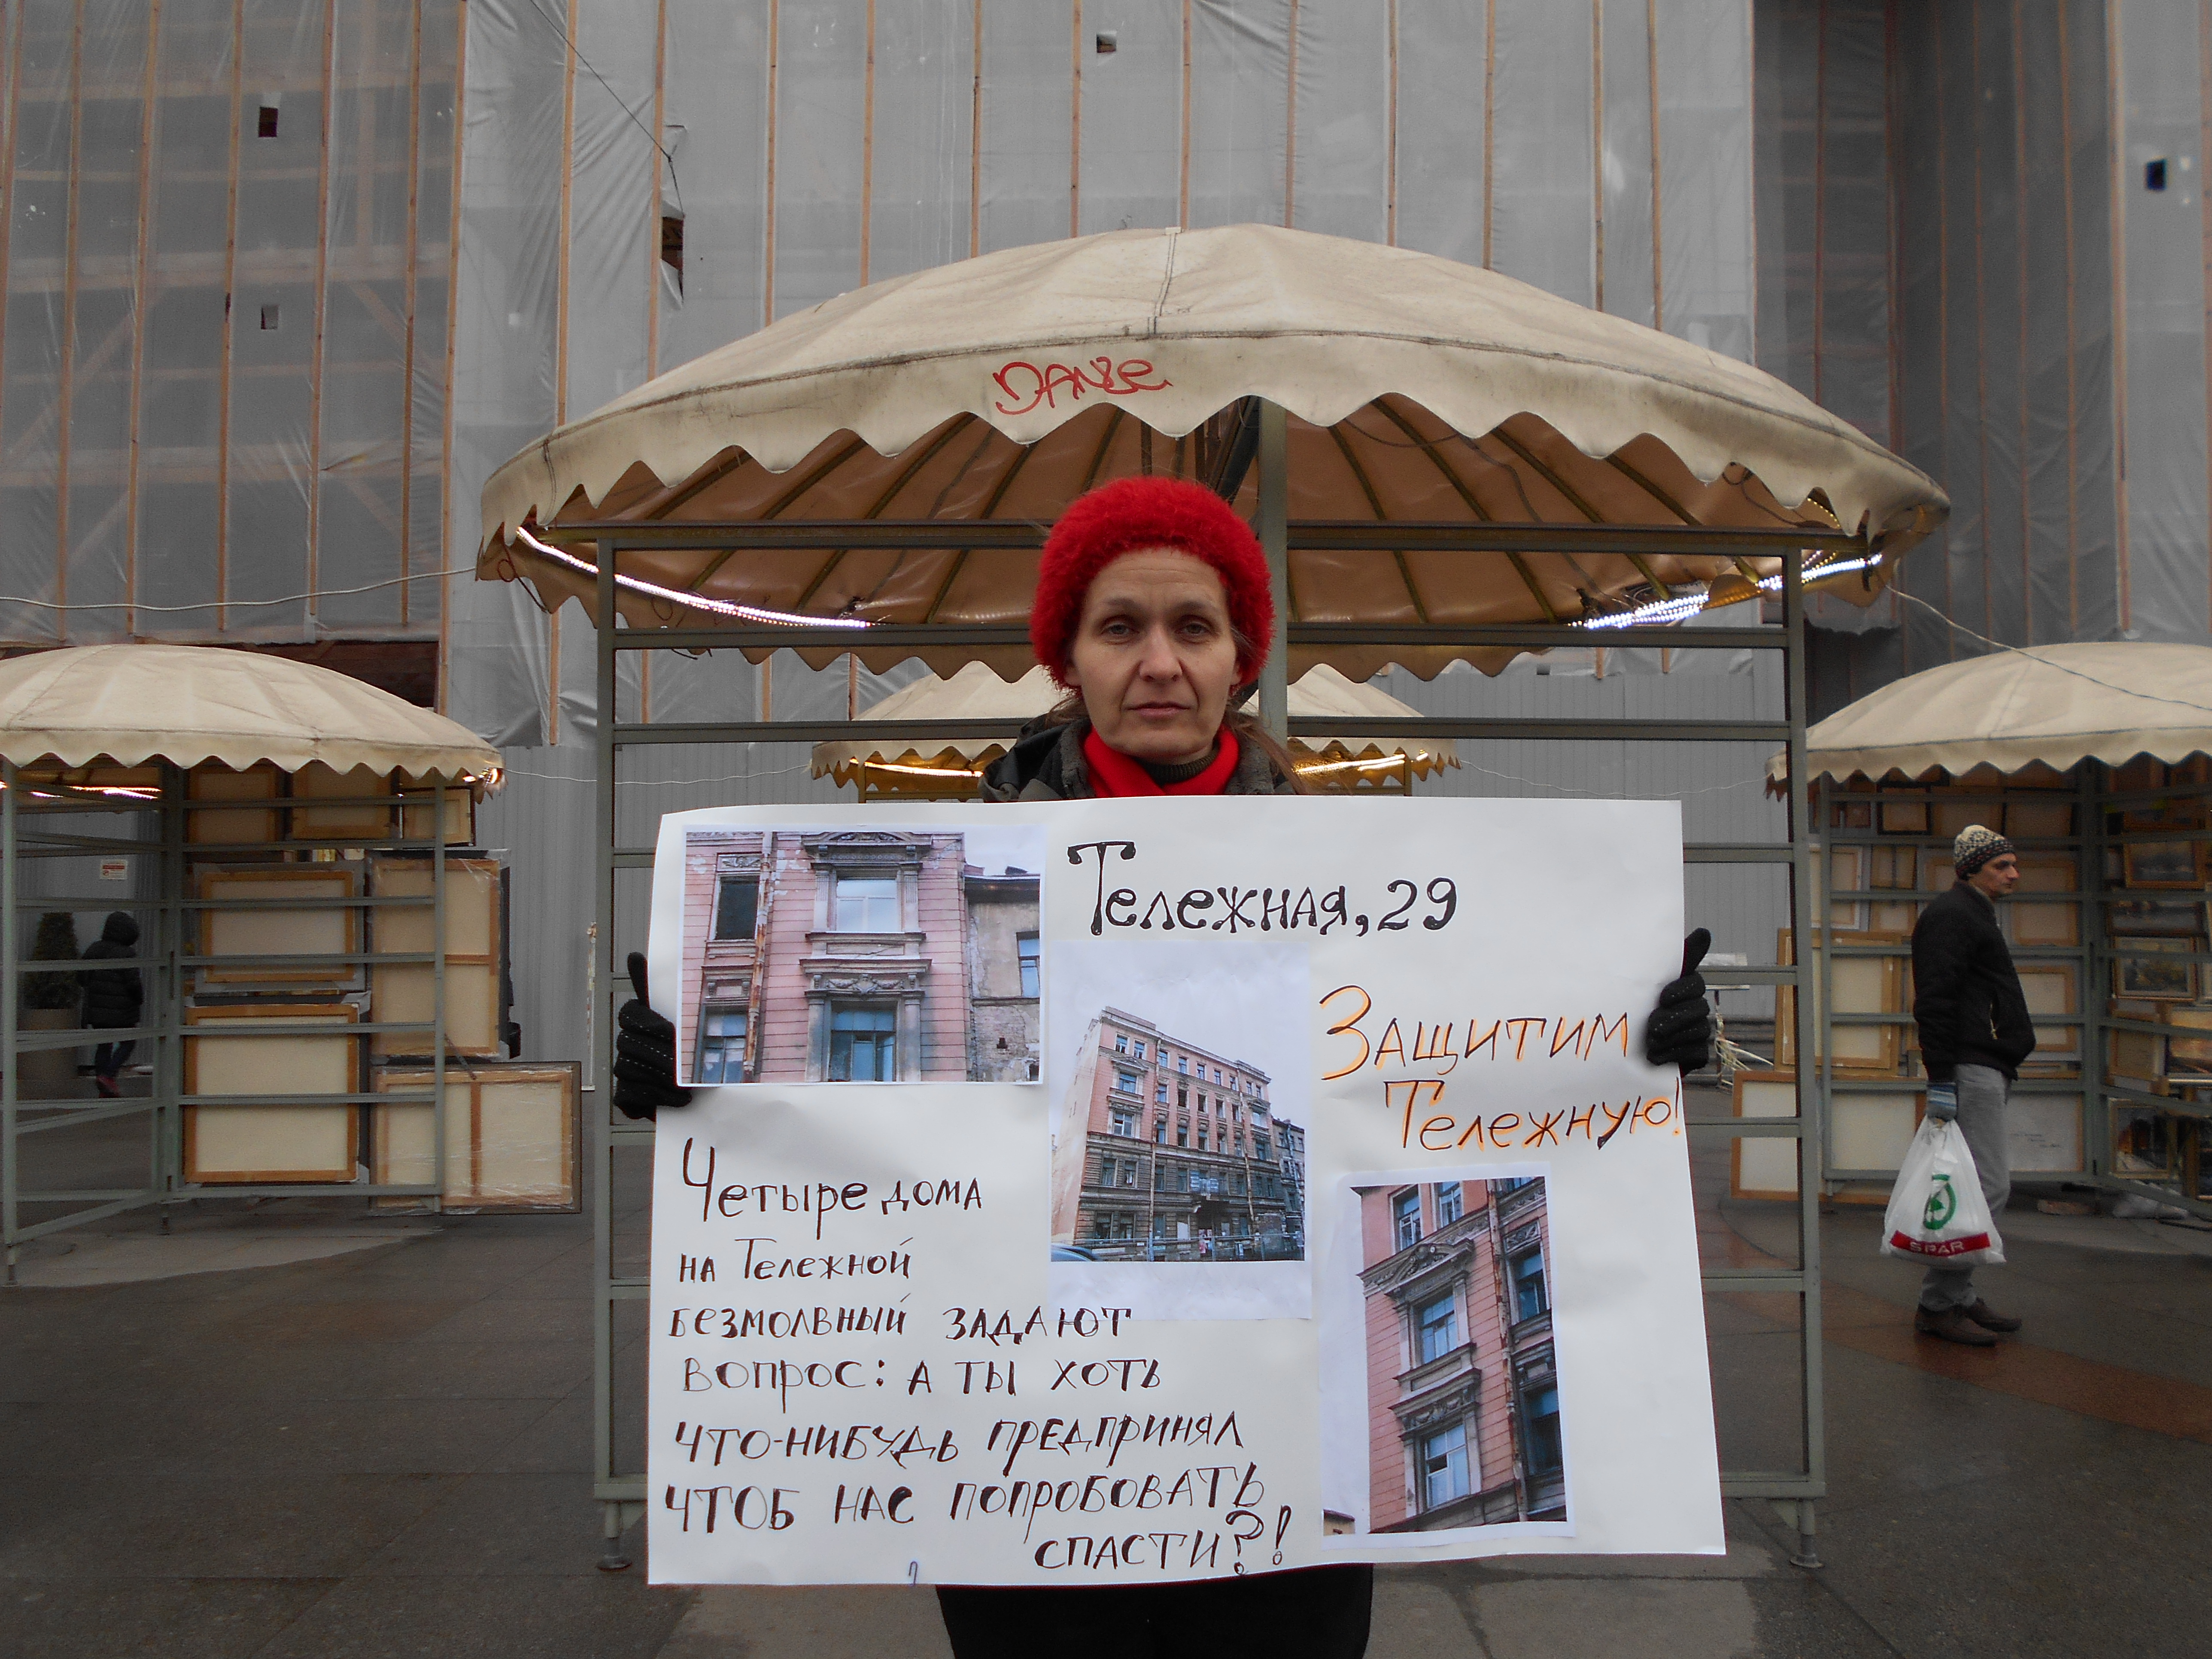 DANSe
Тележная, 29
Защитим
Тележную!
Четыре дома
на Тележной
безмолвный задают
вопрос: а ты хоть
что-нибудь предпринял
чтоб нас попробовать
спасти?!
SPAR